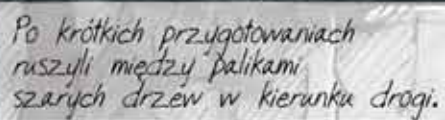 Po krótkich przygotowaniach
ruszyli między palikami
szarych drzew w kierunku drogi.